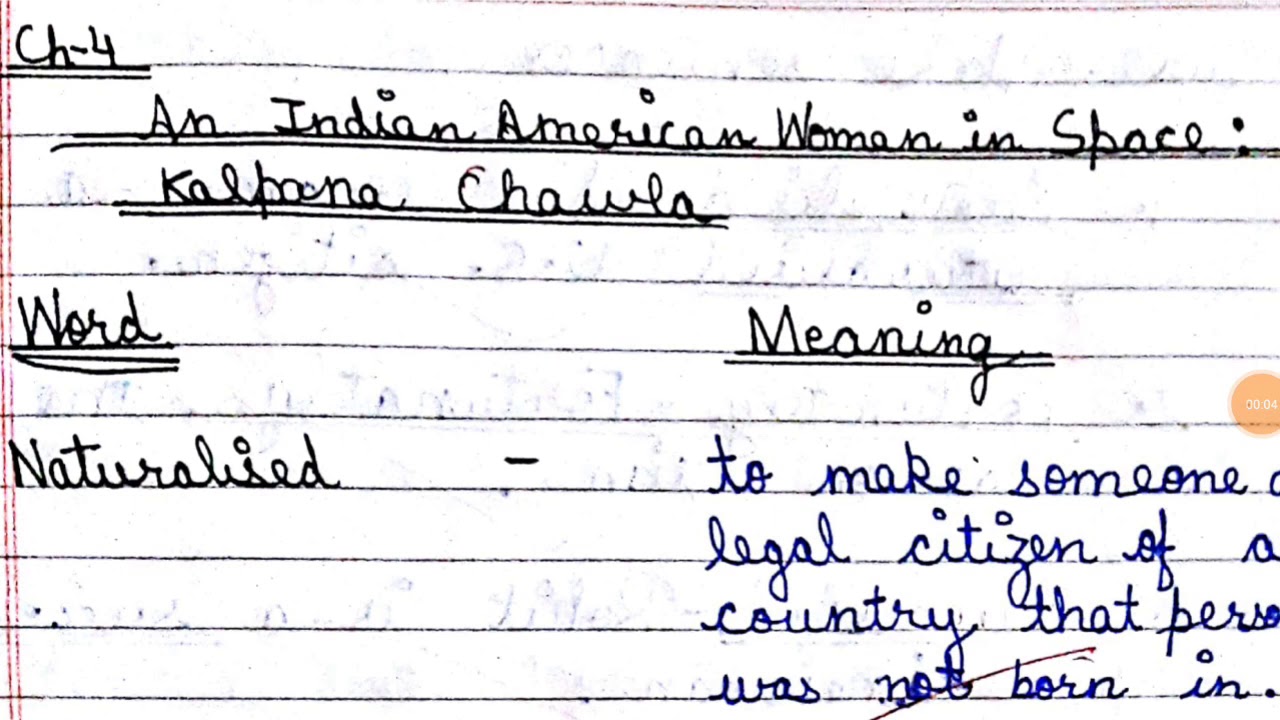 Ch-4
An Indian American Woman in Space:
Kalpana Chawla
Word Meaning
Naturalised - to make someone a
legal citizen of a
country that perso
was not born in.
00:04